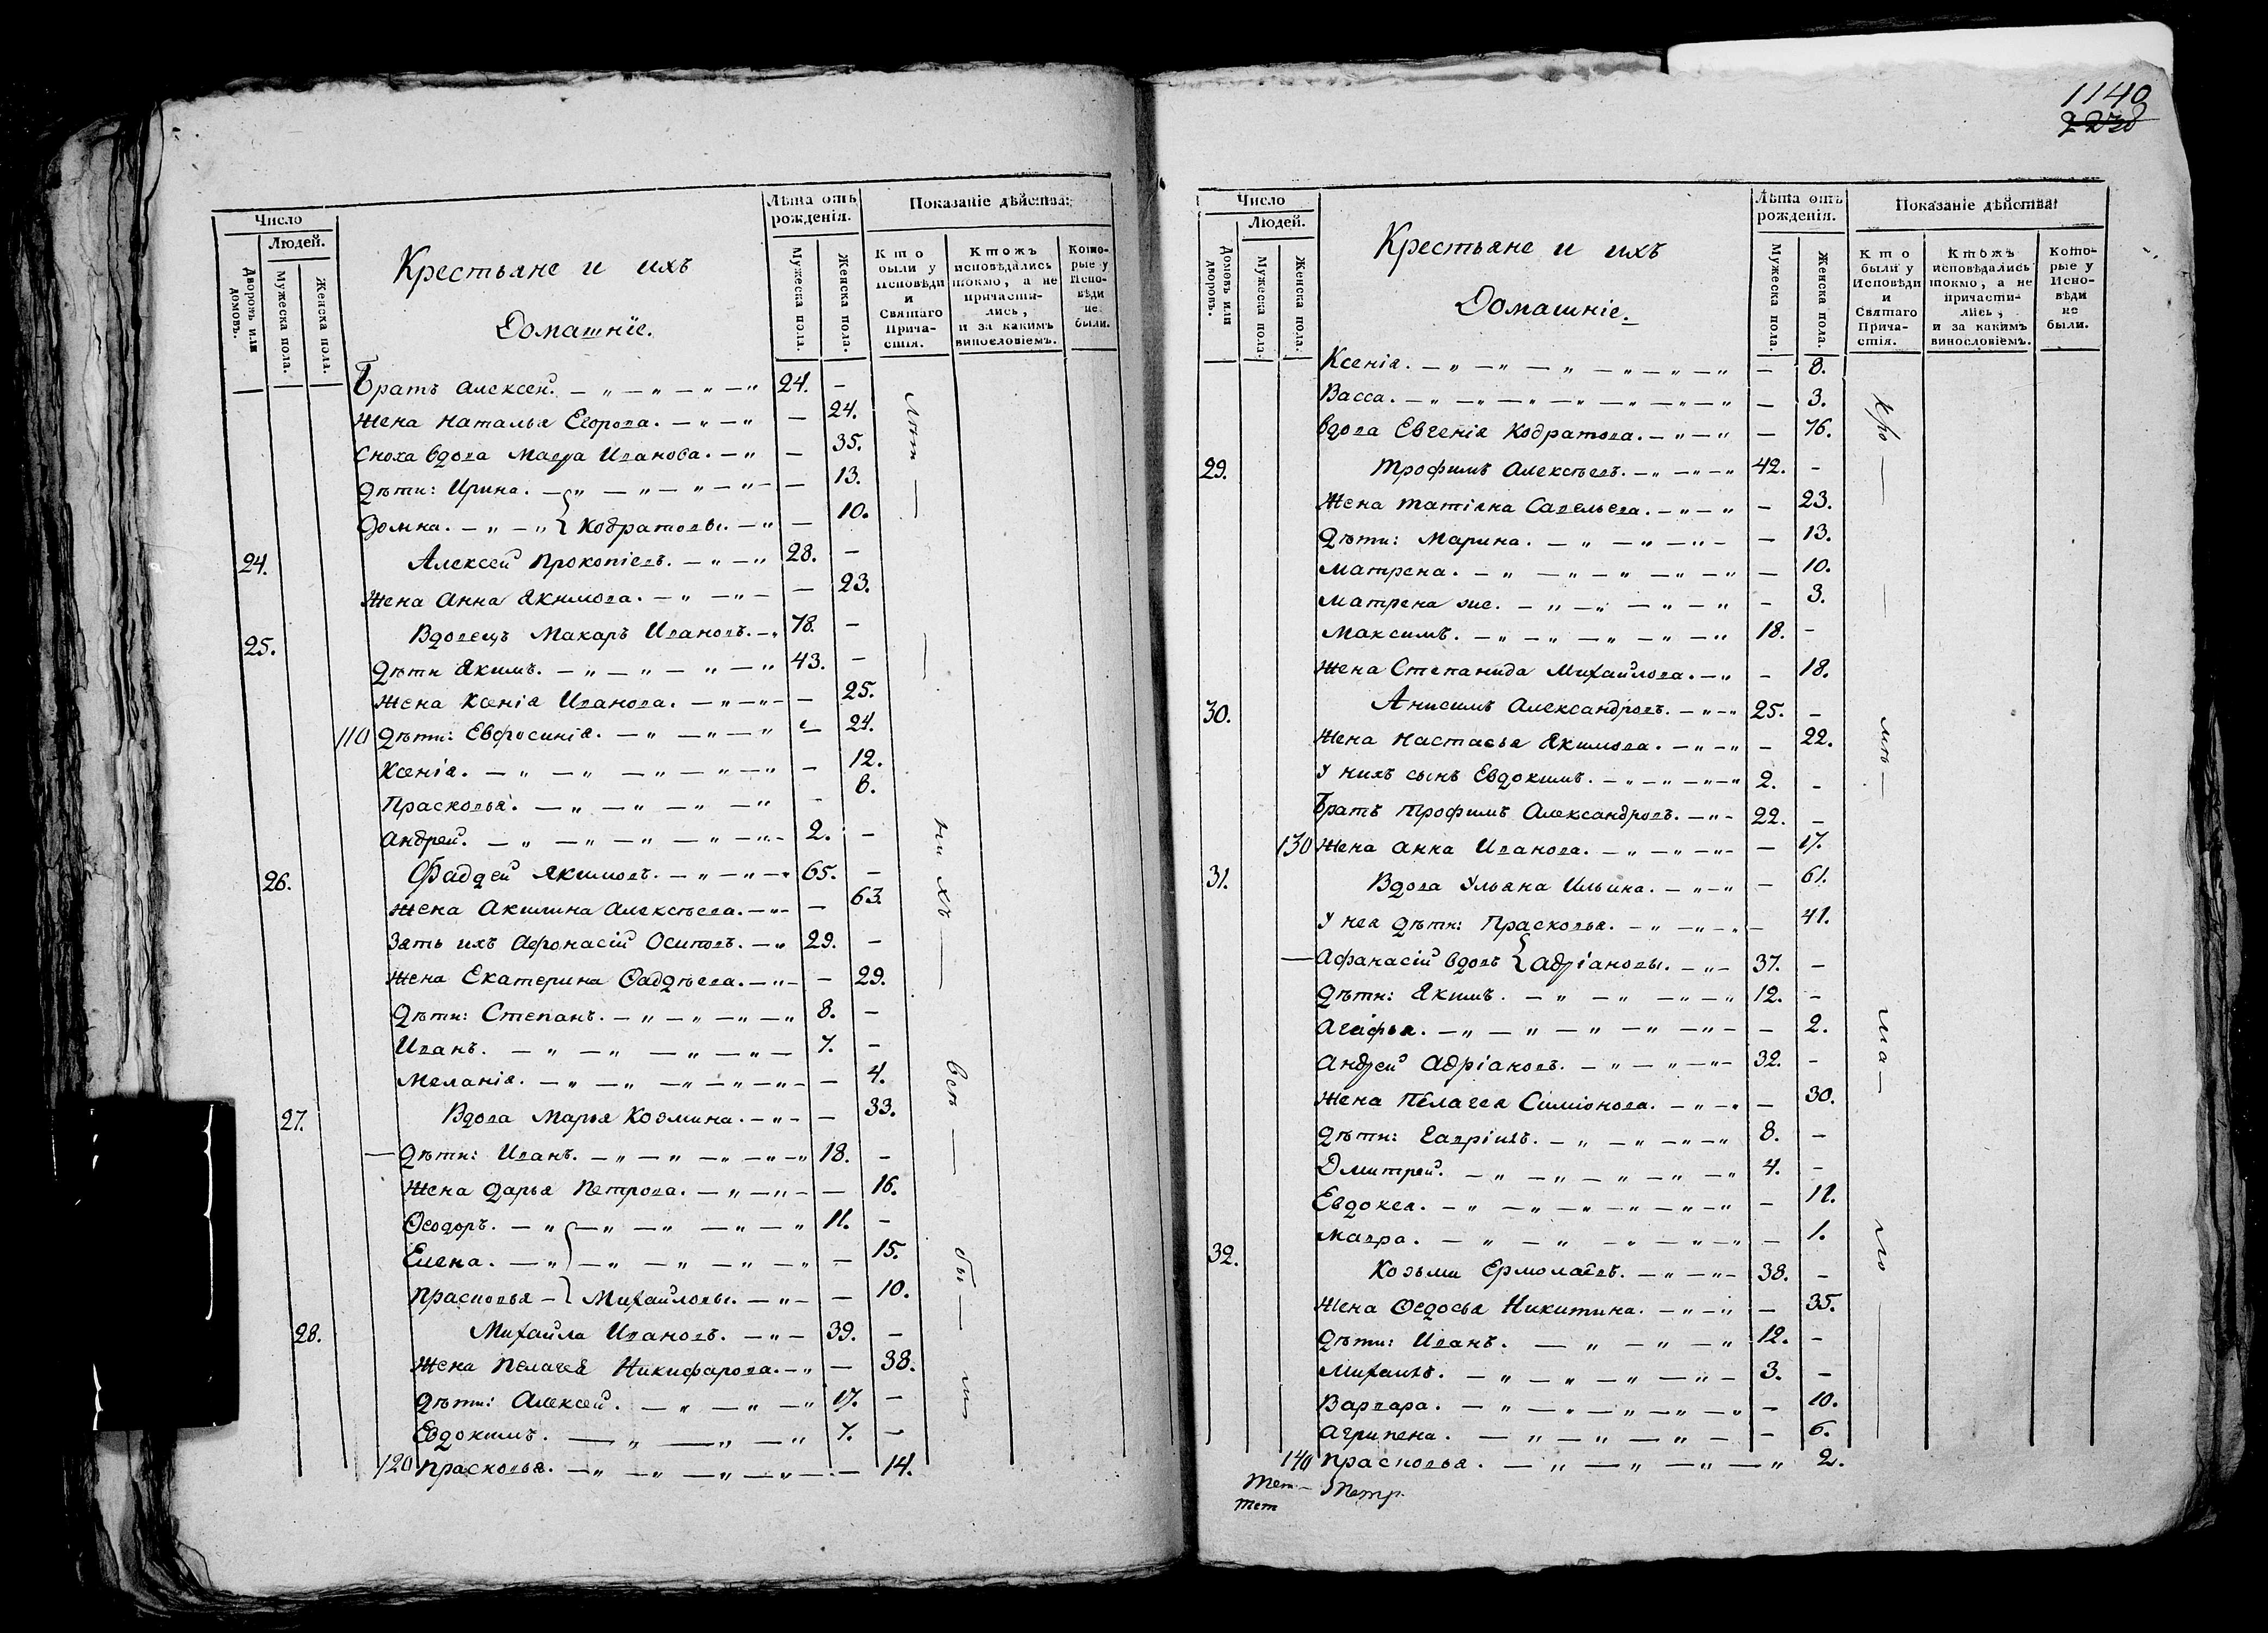 Число
Людей.
Дворовъ или домовъ.
Мужеска пола.
Женска пола.
Крестьяне и ихъ
Домашнїе.
Лѣта отъ рожденія.
Мужеска пола.
Женска пола.
Показаніе дѣйства:
Кто были у Исповѣди и Святаго Причастія.
Ктожъ исповѣдались токмо, а не причастились, и за какимъ винословіемъ.
Которые у Исповѣди не были.
Братъ Алексей. 24. —
Жена Наталья Егорова. — 24.
Сноха вдова Мавра Иванова. — 35.
Дѣти: Ирина. — 13.
Домна. } Кодратовы. — 10.
24. Алексей Прокопіевъ. 28. —
Жена Анна Якимова. — 23.
25. Вдовецъ Макаръ Ивановъ. 78. —
Дѣти Якимъ. 43. —
Жена Ксенія Иванова. — 25.
110 Дѣти: Евфросинія. — 24.
Ксенія. — 12.
Прасковья. — 8.
Андрей. 2. —
26. Фаддей Якимовъ. 65. —
Жена Акилина Алексѣева. — 63.
Зять ихъ Афонасій Осиповъ. 29. —
Жена Екатерина Ѳаддѣева. — 29.
Дѣти: Степанъ. 8. —
Иванъ. 7. —
Меланія. — 4.
27. Вдова Марья Козмина. — 33.
— Дѣти: Иванъ. 18. —
Жена Дарья Петрова. — 16.
Ѳеодоръ. 11. —
Елена. — 15.
Прасковья } Михайловы. — 10.
28. Михайла Ивановъ. 39. —
Жена Пелагея Никифарова. — 38.
Дѣти: Алексей. 17. —
Евдокимъ. 7. —
120 Прасковья. — 14.
ни хъ — всѣ — бы —
1140
Число
Людей.
Домовъ или дворовъ.
Мужеска пола.
Женска пола.
Крестьяне и ихъ
Домашніе.
Лѣта отъ рожденія.
Мужеска пола.
Женска пола.
Показаніе дѣйства:
Кто были у Исповѣди и Святаго Причастія.
Ктожъ исповѣдались токмо, а не причастились, и за какимъ винословіемъ.
Которые у Исповѣди не были.
Ксенія. — 8.
Васса. — 3.
Вдова Евгенія Кодратова. — 76.
29. Трофимъ Алексѣевъ. 42. —
Жена Татіяна Савельева. — 23.
Дѣти: Марина. — 13.
Матрена. — 10.
Матрена же. — 3.
Максимъ. 18. —
Жена Степанида Михайлова. — 18.
30. Анисимъ Александровъ. 25. —
Жена Настасья Якимова. — 22.
У нихъ сынъ Евдокимъ. 2. —
Братъ Трофимъ Александровъ. 22. —
130 Жена Анна Иванова. — 17.
31. Вдова Ульяна Ильина. — 61.
У нея дѣти: Прасковья. — 41.
— Афанасій вдовъ } Адріановы. 37. —
Дѣти: Якимъ. 12. —
Агафья. — 2.
Андрей Адріановъ. 32. —
Жена Пелагея Симіонова. — 30.
Дѣти: Гавріилъ. 8. —
Дмитрей. 4. —
Евдокея. — 11.
Мавра. — 1.
32. Козьма Ермолаевъ. 38. —
Жена Ѳедосья Никитина. — 35.
Дѣти: Иванъ. 12. —
Михаилъ. 3. —
Варвара. — 10.
Агрипена. — 6.
140 Прасковья. — 2.
Кро — мѣ — ма — ло